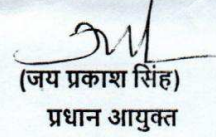 (जय प्रकाश सिंह)
प्रधान आयुक्त